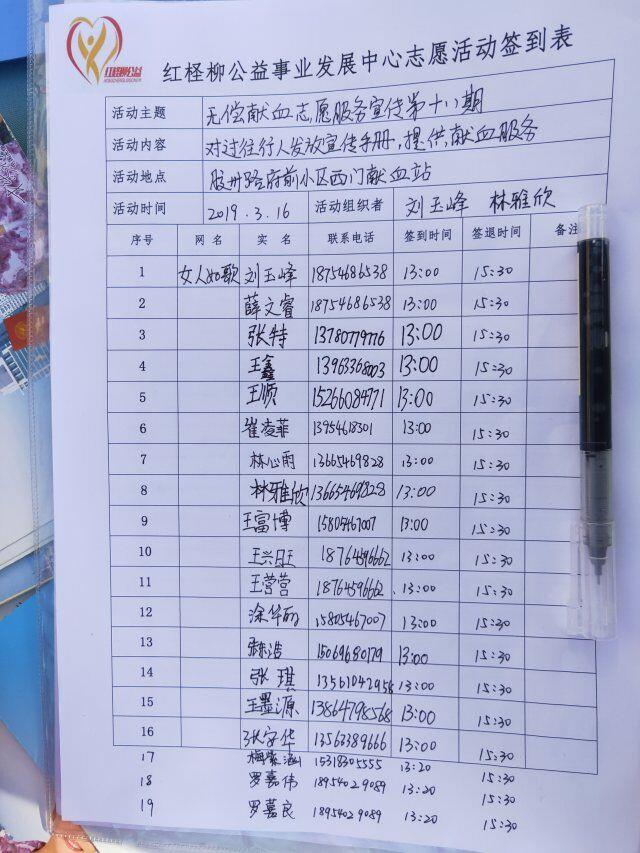 红柽柳公益
红柽柳公益事业发展中心志愿活动签到表
活动主题 无偿献血志愿服务宣传第十八期
活动内容 对过往行人发放宣传手册,提供献血服务
活动地点 胶州路府前小区西门献血站
活动时间 2019.3.16 活动组织者 刘玉峰 林雅欣
序号 网名 实名 联系电话 签到时间 签退时间 备注
1 女人如歌 刘玉峰 18754686538 13:00 15:30
2 薛文睿 18754686538 13:00 15:30
3 张特 13780779776 13:00 15:30
4 王鑫 13963368003 13:00 15:30
5 王顺 15266084771 13:00 15:30
6 崔凌菲 13954618301 13:00 15:30
7 林心雨 13665469828 13:00 15:30
8 林雅欣 13665469828 13:00 15:30
9 王富博 15805467007 13:00 15:30
10 王兴旺 18764596662 13:00 15:30
11 王营营 18764596662 13:00 15:30
12 涂华丽 15805467007 13:00 15:30
13 浩 15069680179 13:00 15:30
14 张琪 13561042958 13:00 15:30
15 王墨源 13864798568 13:00 15:30
16 张安华 13563389666 13:00 15:30
17 梅紫涵 15318305555 13:20 15:30
18 罗嘉伟 18954029089 13:20 15:30
19 罗嘉良 18954029089 13:20 15:30